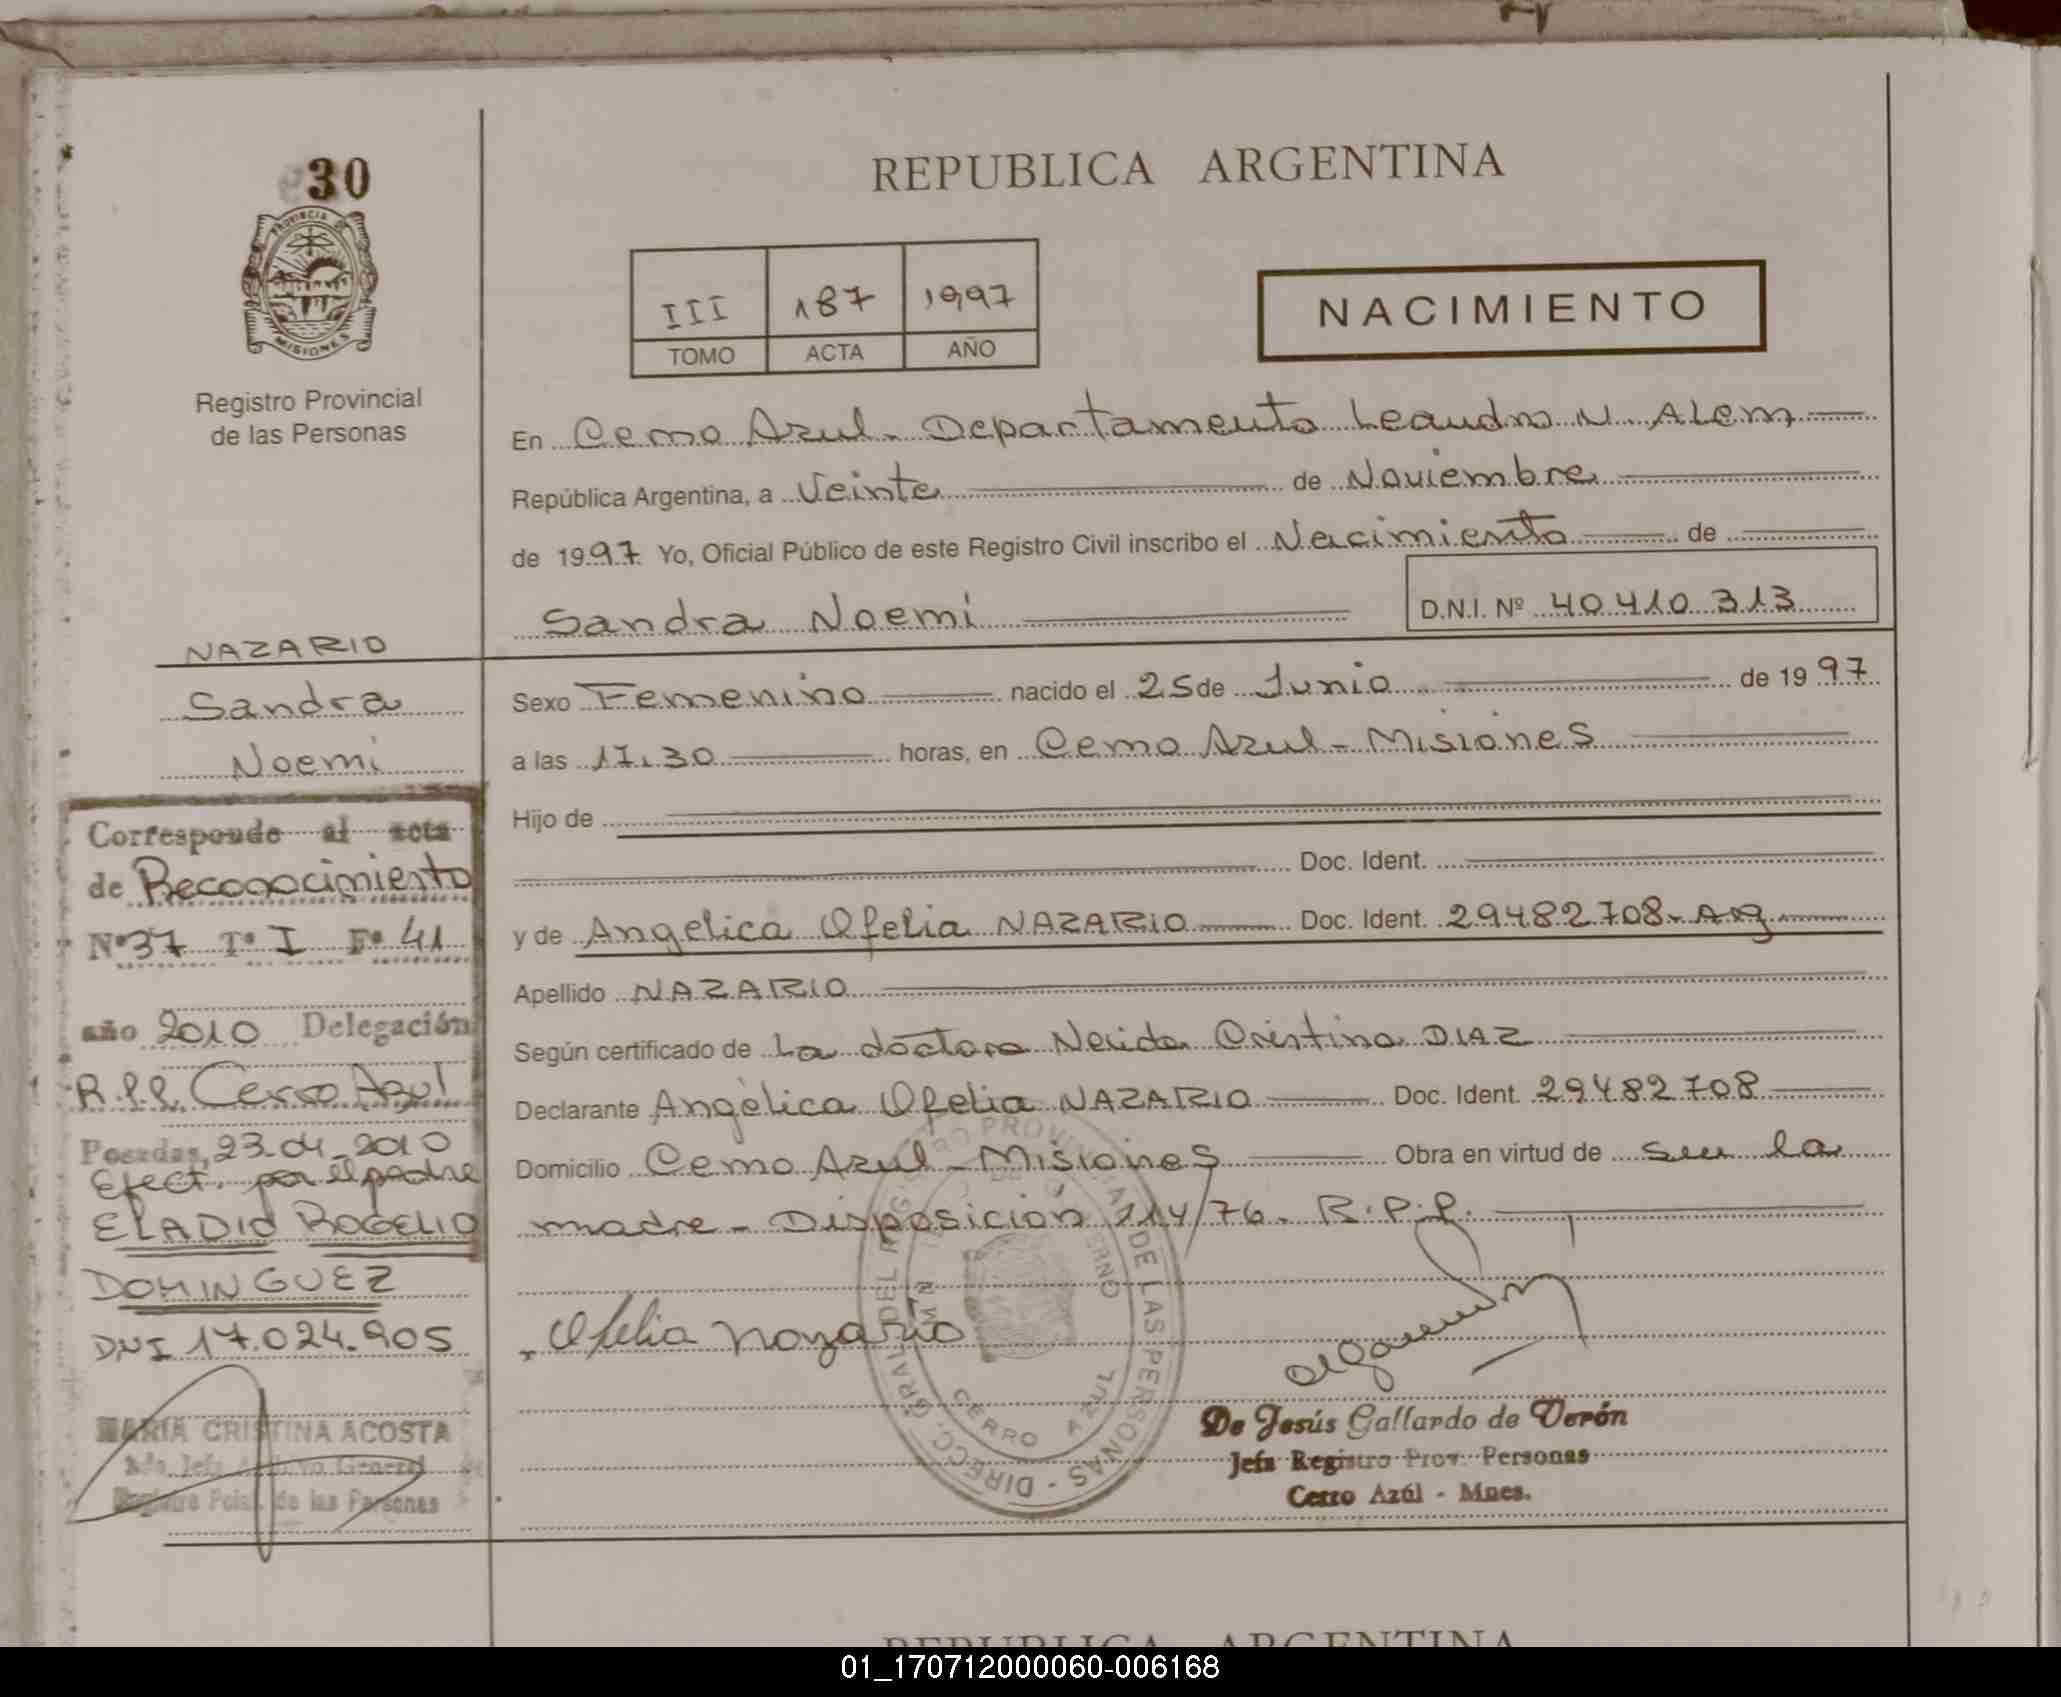 30
PROVINCIA DE
MISIONES
Registro Provincial
de las Personas
NAZARIO
Sandra
Noemi
Corresponde al acta
de Reconocimiento
Nº 37 Tº I Fº 41
año 2010 Delegación
R.P.P. Cerro Azul
Posadas, 23-04-2010
Efect. por el padre
ELADIO ROGELIO
DOMINGUEZ
DNI 17.024.905
MARIA CRISTINA ACOSTA
de las Personas
REPUBLICA ARGENTINA
III 187 1997
TOMO ACTA AÑO
NACIMIENTO
En Cerro Azul - Departamento Leandro N. Alem
República Argentina, a Veinte de Noviembre
de 1997 Yo, Oficial Público de este Registro Civil inscribo el Nacimiento de
Sandra Noemi D.N.I. Nº 40410313
Sexo Femenino nacido el 25 de Junio de 1997
a las 17.30 horas, en Cerro Azul - Misiones
Hijo de
Doc. Ident.
y de Angelica Ofelia NAZARIO Doc. Ident. 29482708. Arg
Apellido NAZARIO
Según certificado de La doctora Nerida Cristina DIAZ
Declarante Angelica Ofelia NAZARIO Doc. Ident. 29482708
Domicilio Cerro Azul - Misiones Obra en virtud de ser la
madre - Disposicion 214/76. R.P.P.
Ofelia Nazario
DIRECC. GRAL. DEL REGISTRO PROVINCIAL DE LAS PERSONAS
CERRO AZUL
De Jesús Gallardo de Verón
Jefa Registro Prov. Personas
Cerro Azúl - Mnes.
REPUBLICA ARGENTINA
01_170712000060-006168